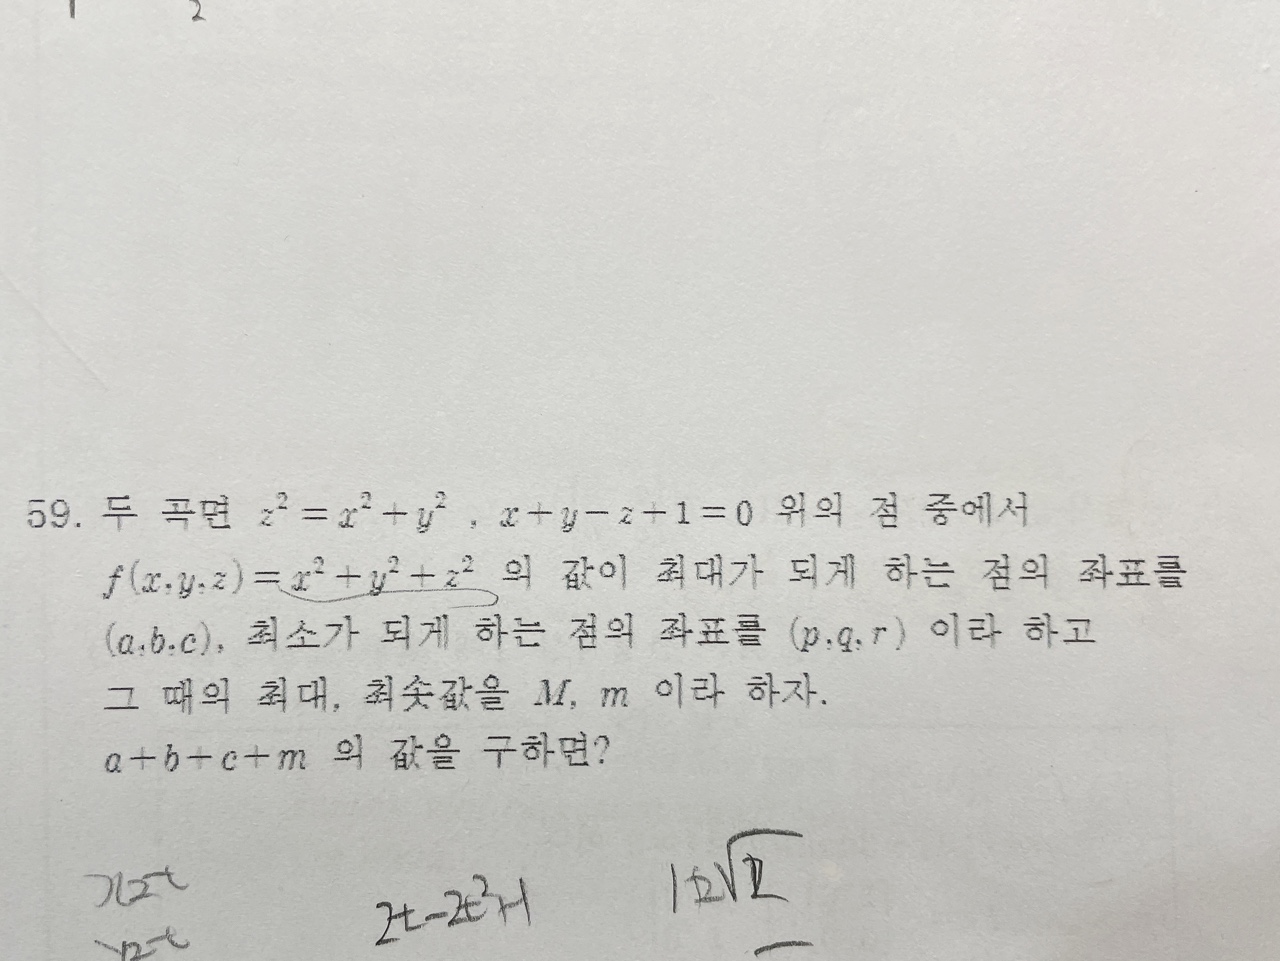 2
59. 두 곡면 z² = x² + y² , x + y - z + 1 = 0 위의 점 중에서
f(x, y, z) = x² + y² + z² 의 값이 최대가 되게 하는 점의 좌표를
(a, b, c), 최소가 되게 하는 점의 좌표를 (p, q, r) 이라 하고
그 때의 최대, 최솟값을 M, m 이라 하자.
a + b + c + m 의 값을 구하면?
2t - 2t² + 1